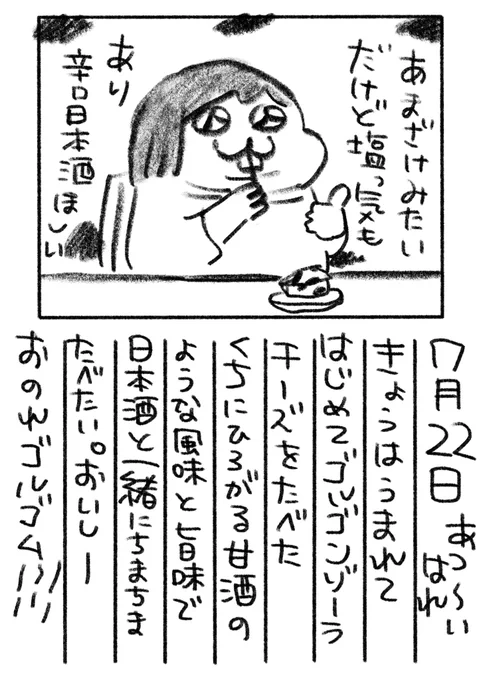 あまざけみたい
だけど塩っ気も
あり
辛口日本酒ほしい
7月22日 あつ〜い はれ
きょうはうまれて
はじめてゴルゴンゾーラ
チーズをたべた
くちにひろがる甘酒の
ような風味と旨味で
日本酒と一緒にちまちま
たべたい。おいしー
おのれゴルゴム!!!